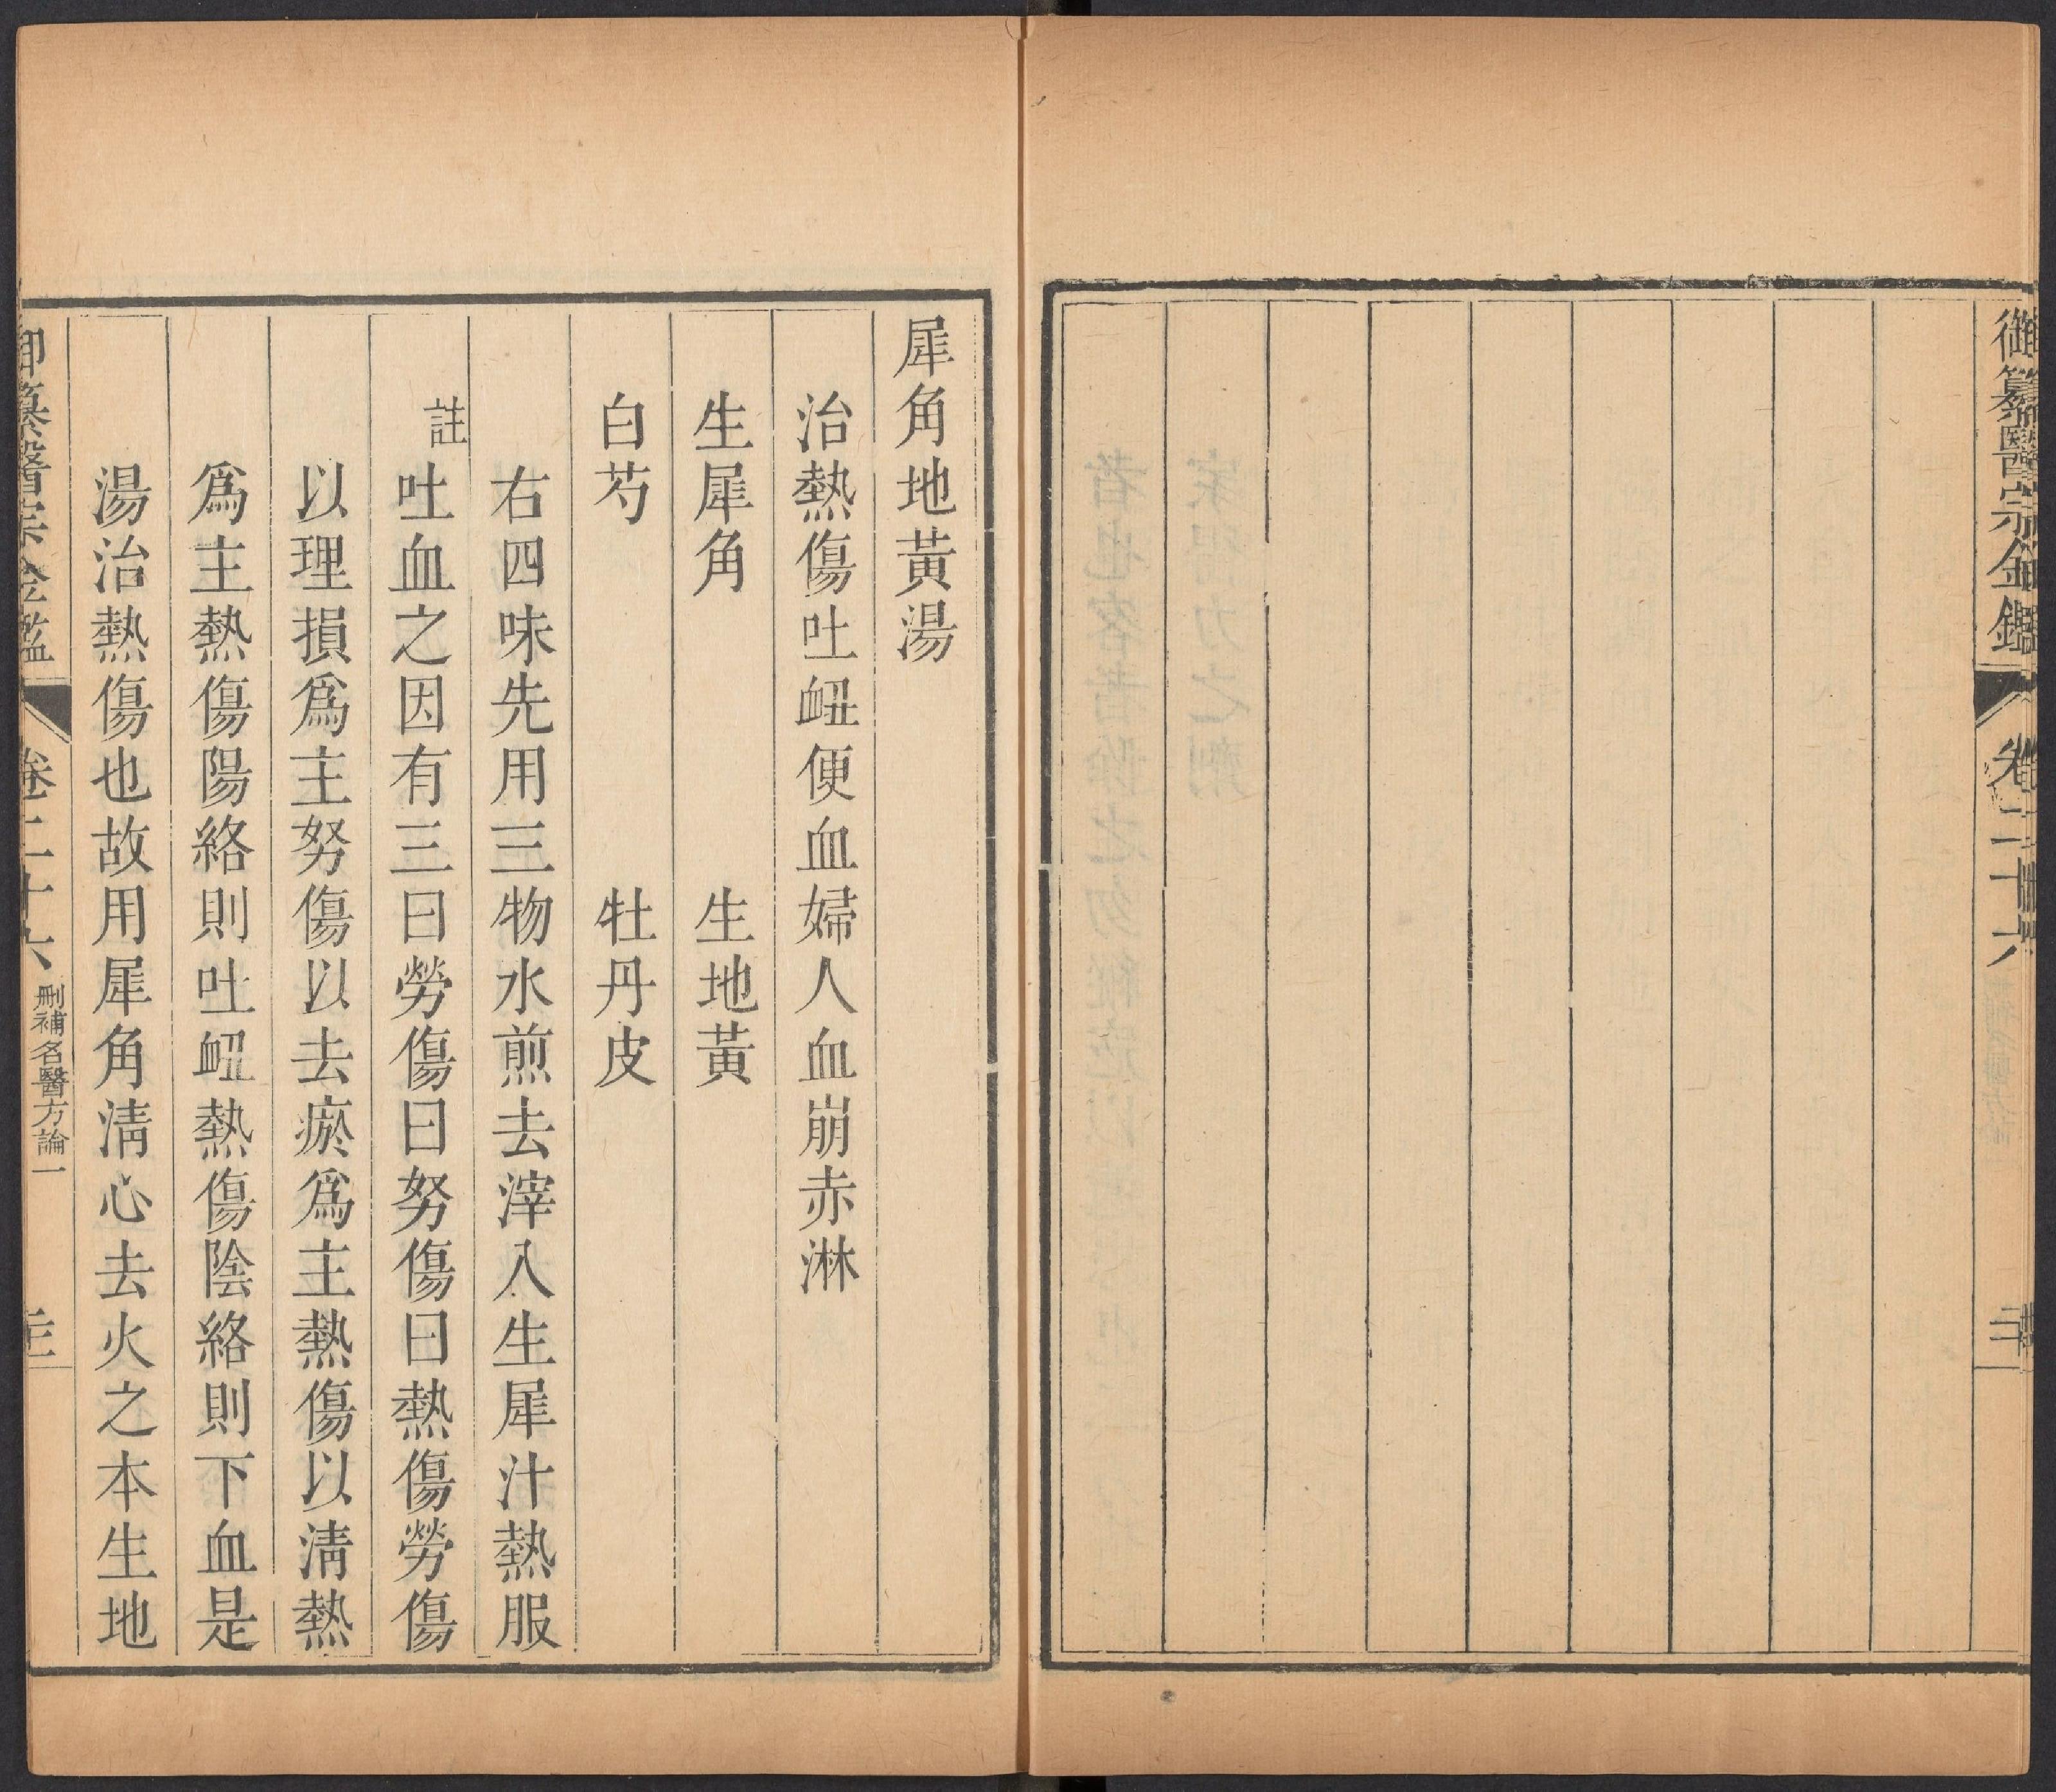 御纂醫宗金鑑 卷二十六
犀角地黃湯
治熱傷吐衄便血婦人血崩赤淋
生犀角 生地黃
白芍 牡丹皮
右四味先用三物水煎去滓入生犀汁熱服
註吐血之因有三曰勞傷曰努傷曰熱傷勞傷
以理損爲主努傷以去瘀爲主熱傷以清熱
爲主熱傷陽絡則吐衄熱傷陰絡則下血是
湯治熱傷也故用犀角清心去火之本生地
御纂醫宗金鑑 卷二十六 刪補名醫方論一